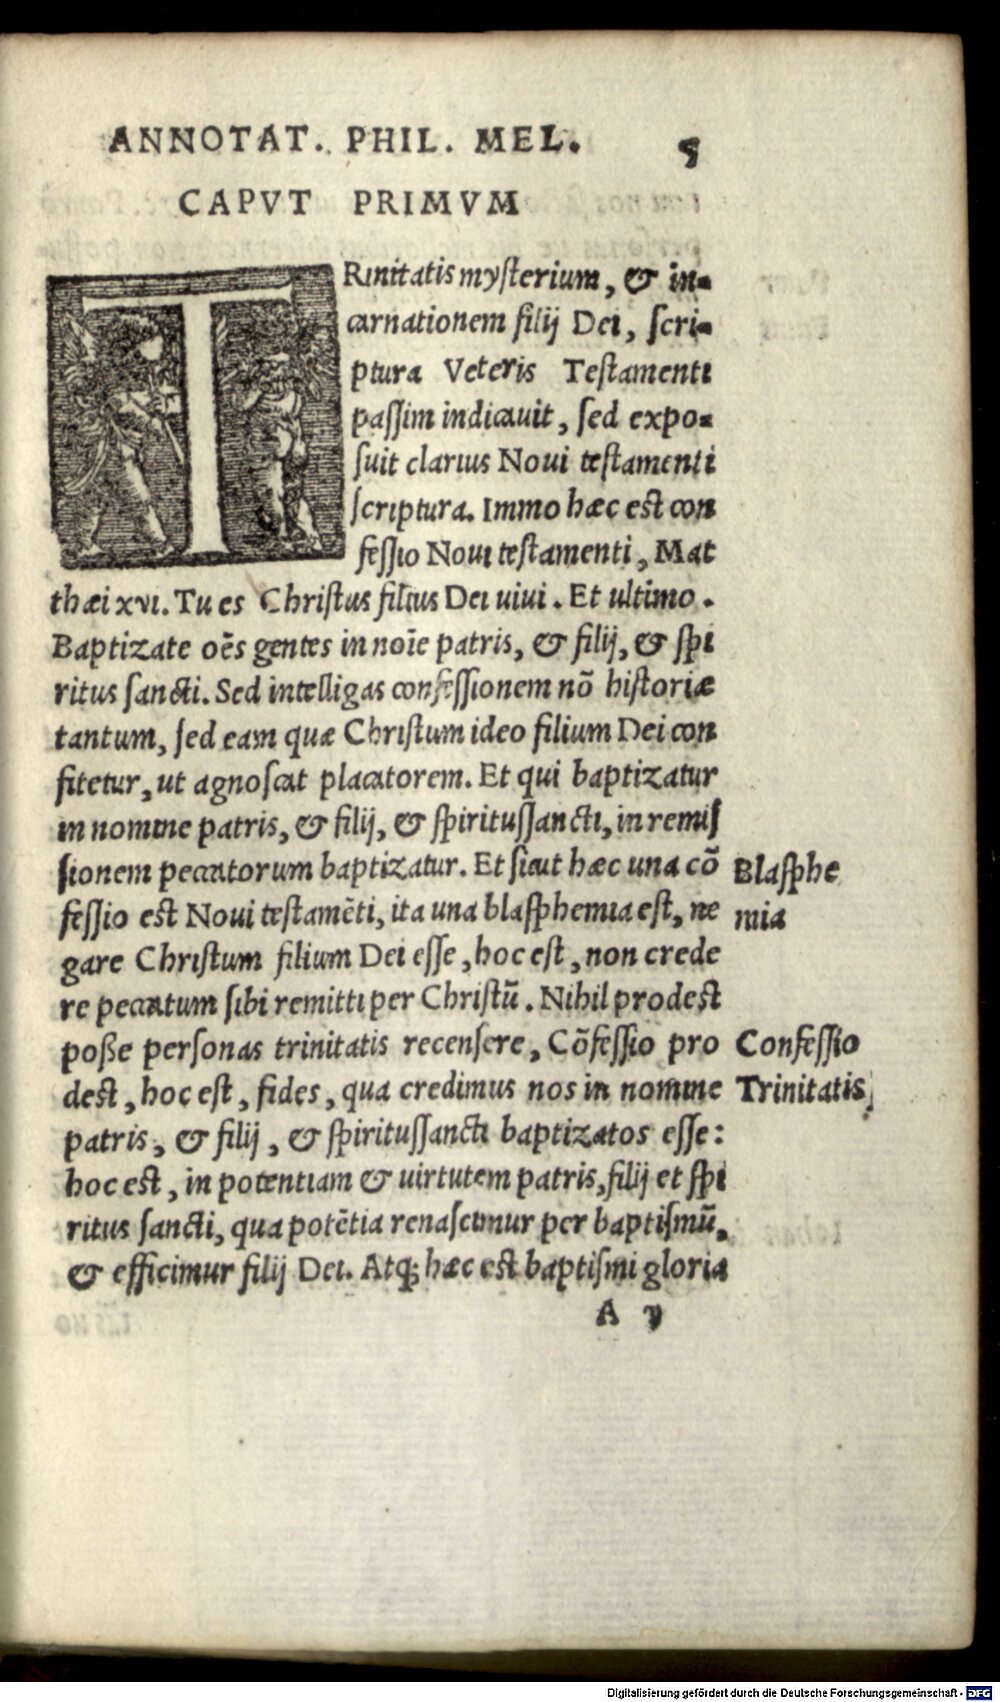 ANNOTAT. PHIL. MEL. 5
CAPVT PRIMVM
TRinitatis mysterium, & in-
carnationem filij Dei, scri-
ptura Veteris Testamenti
passim indicauit, sed expo-
suit clarius Noui testamenti
scriptura. Immo hæc est con
fessio Noui testamenti, Mat
thæi xvi. Tu es Christus filius Dei uiui. Et ultimo.
Baptizate oẽs gentes in noĩe patris, & filij, & spi
ritus sancti. Sed intelligas confessionem nõ historiæ
tantum, sed eam quæ Christum ideo filium Dei con
fitetur, ut agnoscat placatorem. Et qui baptizatur
in nomine patris, & filij, & spiritussancti, in remis
sionem peccatorum baptizatur. Et sicut hæc una cõ
fessio est Noui testamẽti, ita una blasphemia est, ne
gare Christum filium Dei esse, hoc est, non crede
re peccatum sibi remitti per Christũ. Nihil prodest
posse personas trinitatis recensere, Cõfessio pro
dest, hoc est, fides, qua credimus nos in nomine
patris, & filij, & spiritussancti baptizatos esse:
hoc est, in potentiam & uirtutem patris, filij et spi
ritus sancti, qua potẽtia renascimur per baptismũ,
& efficimur filij Dei. Atq; hæc est baptismi gloria
A v
Blasphe
mia
Confessio
Trinitatis
Digitalisierung gefördert durch die Deutsche Forschungsgemeinschaft - DFG